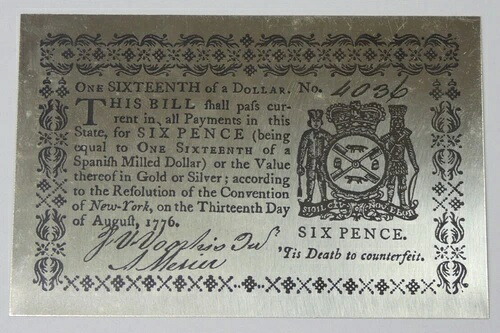 ONE SIXTEENTH of a DOLLAR. No. 4036
THIS BILL ſhall paſs cur-
rent in all Payments in this
State, for SIX PENCE (being
equal to ONE SIXTEENTH of a
Spaniſh Milled Dollar) or the Value
thereof in Gold or Silver; according
to the Reſolution of the Convention
of New-York, on the Thirteenth Day
of Auguſt, 1776.
SIGIL CIV NOV EBAR
SIX PENCE.
'Tis Death to counterfeit.